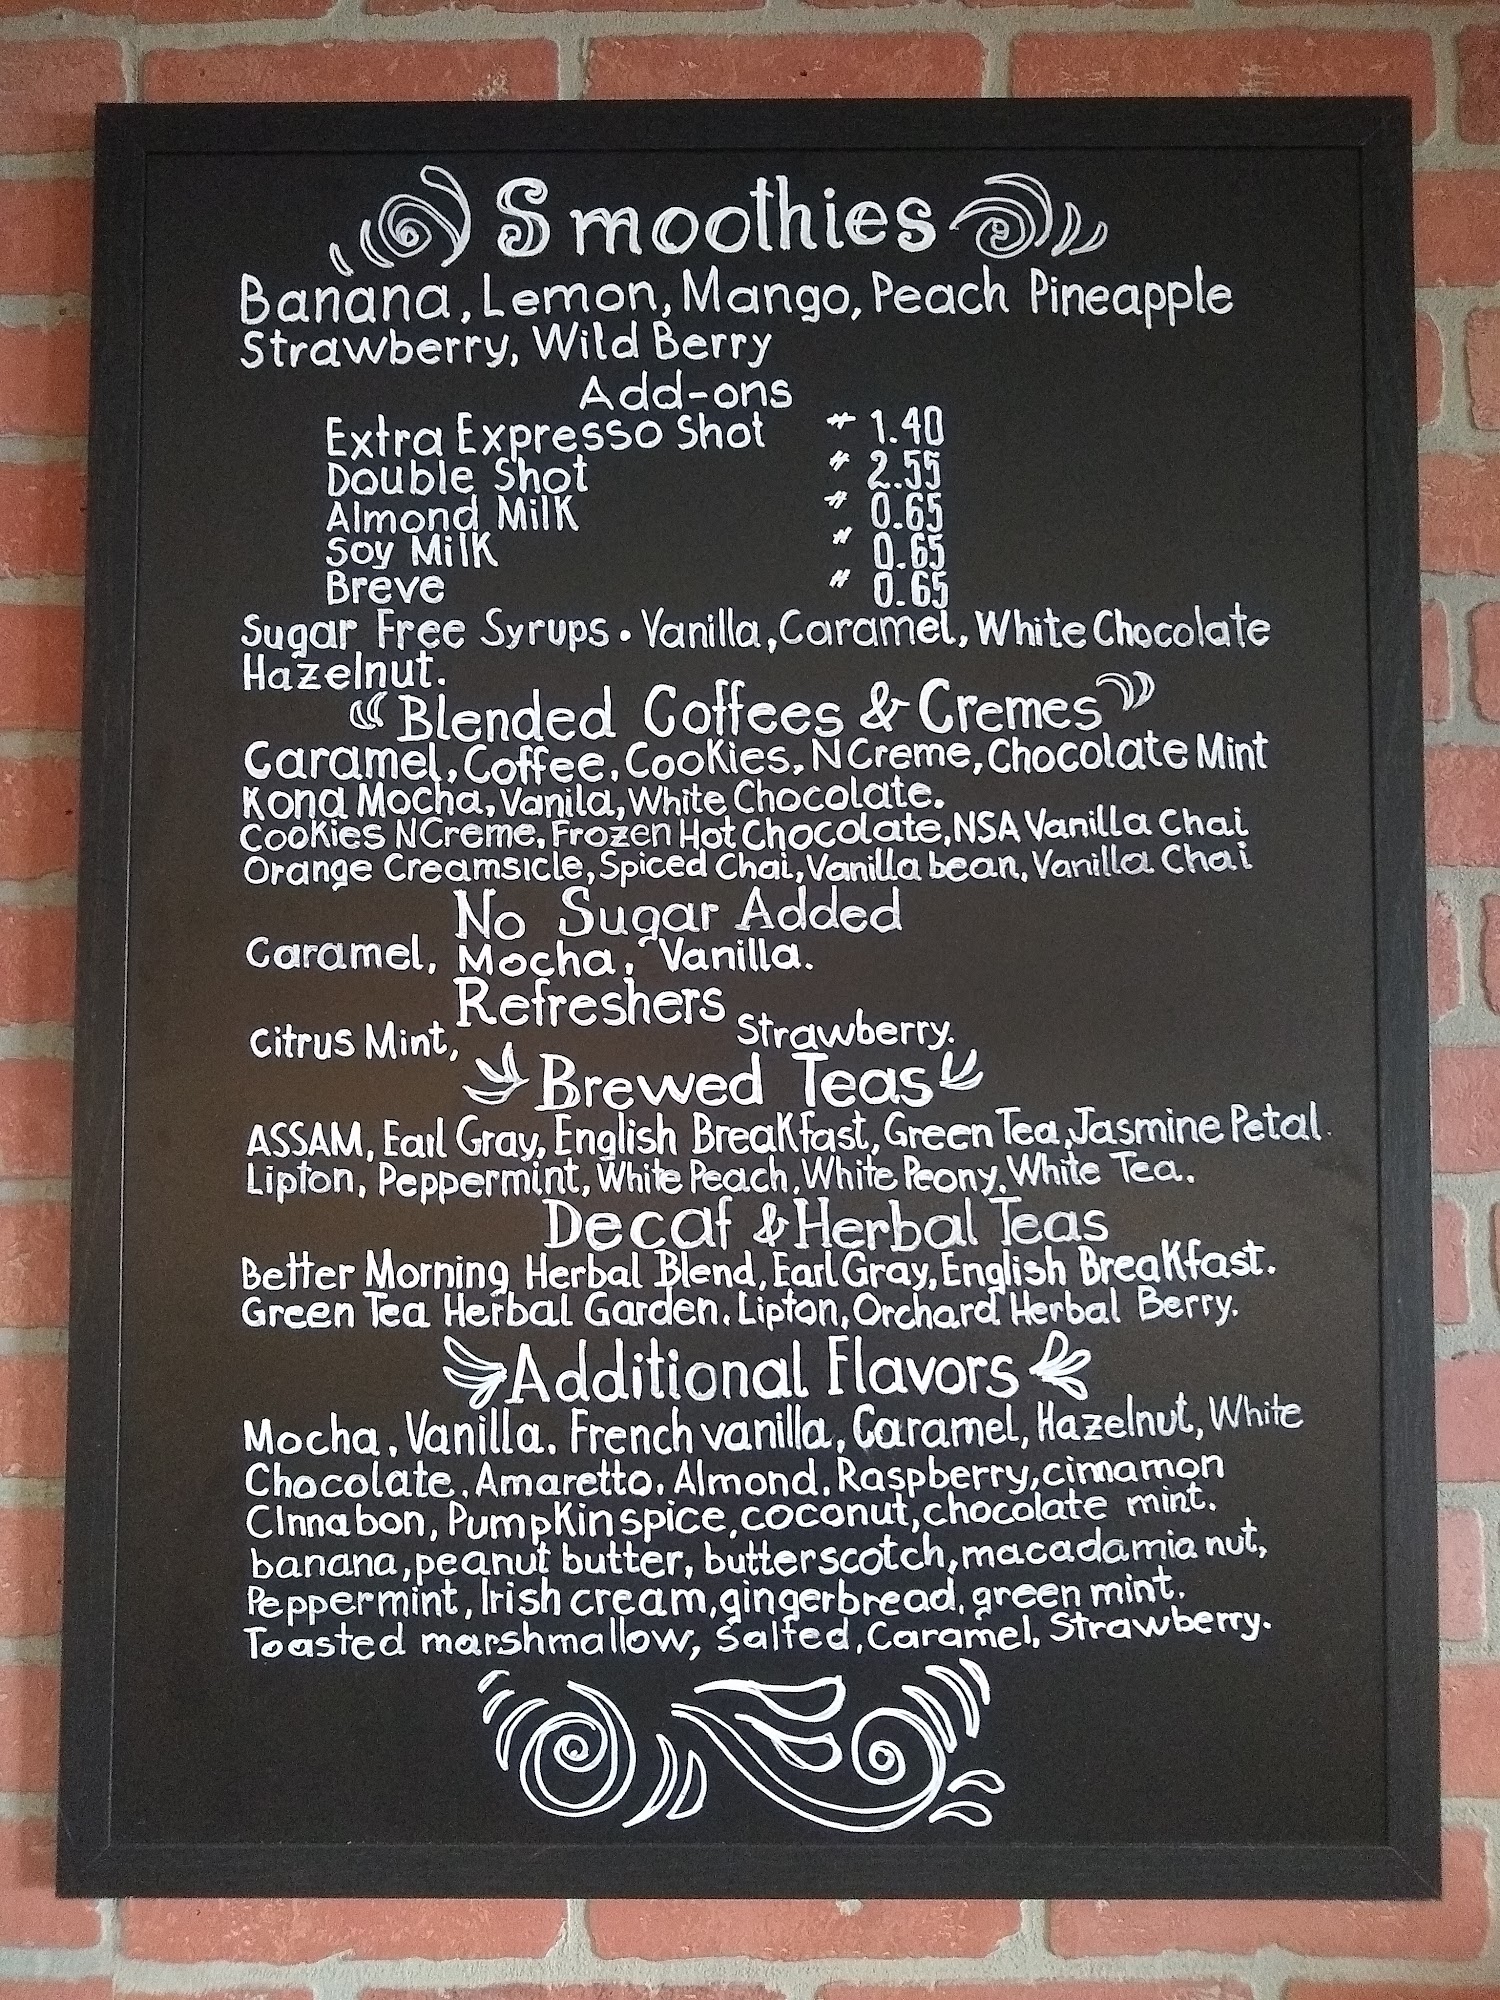 Smoothies
Banana, Lemon, Mango, Peach Pineapple
Strawberry, Wild Berry
Add-ons
Extra Expresso Shot 1.40
Double Shot " 2.55
Almond Milk " 0.65
Soy Milk " 0.65
Breve " 0.65
Sugar Free Syrups • Vanilla, Caramel, White Chocolate
Hazelnut.
Blended Coffees & Cremes
Caramel, Coffee, Cookies, N Creme, Chocolate Mint
Kona Mocha, Vanila, White Chocolate.
Cookies N Creme, Frozen Hot Chocolate, NSA Vanilla Chai
Orange Creamsicle, Spiced Chai, Vanilla bean, Vanilla Chai
No Sugar Added
Caramel, Mocha, Vanilla.
Refreshers
Citrus Mint, Strawberry.
Brewed Teas
ASSAM, Earl Gray, English Breakfast, Green Tea, Jasmine Petal.
Lipton, Peppermint, White Peach, White Peony, White Tea.
Decaf & Herbal Teas
Better Morning Herbal Blend, Earl Gray, English Breakfast.
Green Tea Herbal Garden. Lipton, Orchard Herbal Berry.
Additional Flavors
Mocha, Vanilla. French vanilla, Caramel, Hazelnut, White
Chocolate, Amaretto, Almond, Raspberry, cinnamon
CInnabon, Pumpkin spice, coconut, chocolate mint.
banana, peanut butter, butterscotch, macadamia nut,
Peppermint, Irish cream, gingerbread, green mint.
Toasted marshmallow, Salted, Caramel, Strawberry.